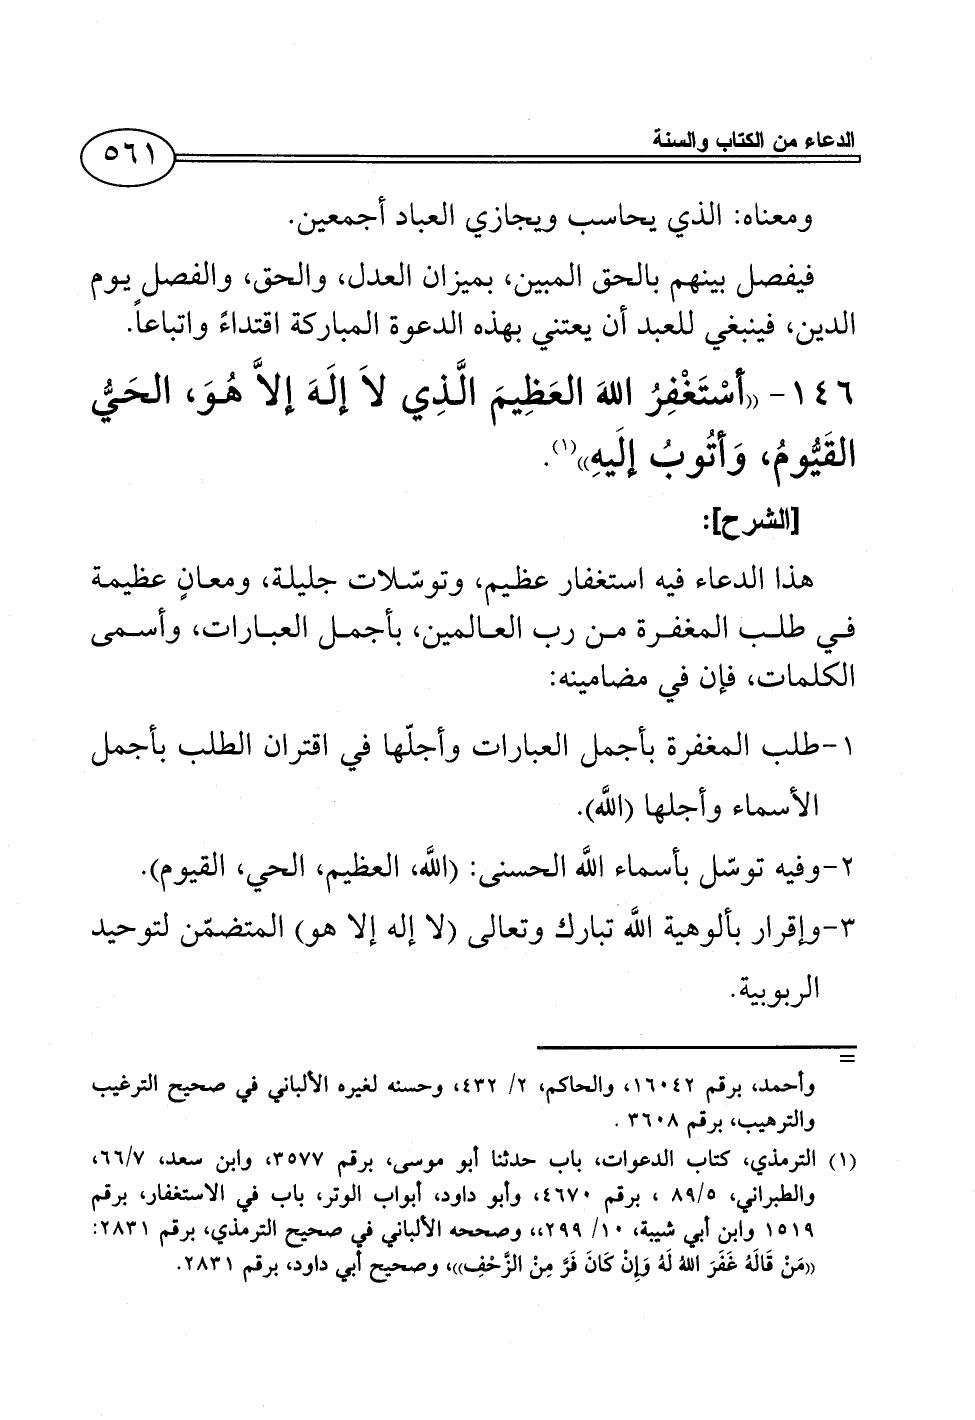 الدعاء من الكتاب والسنة
٥٦١
ومعناه: الذي يحاسب ويجازي العباد أجمعين.
فيفصل بينهم بالحق المبين، بميزان العدل، والحق، والفصل يوم
الدين، فينبغي للعبد أن يعتني بهذه الدعوة المباركة اقتداءً واتباعاً.
١٤٦- ((أَسْتَغْفِرُ اللهَ العَظِيمَ الَّذِي لاَ إِلَهَ إِلاَّ هُوَ، الحَيُّ
القَيُّومُ، وَأَتُوبُ إِلَيهِ))(١).
[الشرح]:
هذا الدعاء فيه استغفار عظيم، وتوسّلات جليلة، ومعانٍ عظيمة
في طلب المغفرة من رب العالمين، بأجمل العبارات، وأسمى
الكلمات، فإن في مضامينه:
١-طلب المغفرة بأجمل العبارات وأجلّها في اقتران الطلب بأجمل
الأسماء وأجلها (اللَّه).
٢-وفيه توسّل بأسماء اللَّه الحسنى: (اللَّه، العظيم، الحي، القيوم).
٣-وإقرار بألوهية اللَّه تبارك وتعالى (لا إله إلا هو) المتضمّن لتوحيد
الربوبية.
=
وأحمد، برقم ١٦٠٤٢، والحاكم، ٢/ ٤٣٢، وحسنه لغيره الألباني في صحيح الترغيب
والترهيب، برقم ٣٦٠٨ .
(١) الترمذي، كتاب الدعوات، باب حدثنا أبو موسى، برقم ٣٥٧٧، وابن سعد، ٦٦/٧،
والطبراني، ٨٩/٥ ، برقم ٤٦٧٠، وأبو داود، أبواب الوتر، باب في الاستغفار، برقم
١٥١٩ وابن أبي شيبة، ١٠/ ٢٩٩،، وصححه الألباني في صحيح الترمذي، برقم ٢٨٣١:
((مَنْ قَالَهُ غَفَرَ اللهُ لَهُ وَإِنْ كَانَ فَرَّ مِنْ الزَّحْفِ))، وصحيح أبي داود، برقم ٢٨٣١.